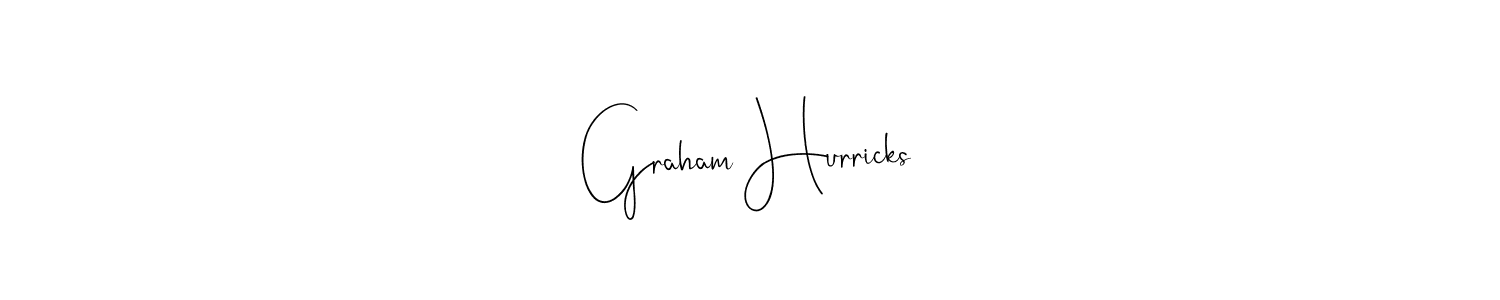 Graham Hurricks